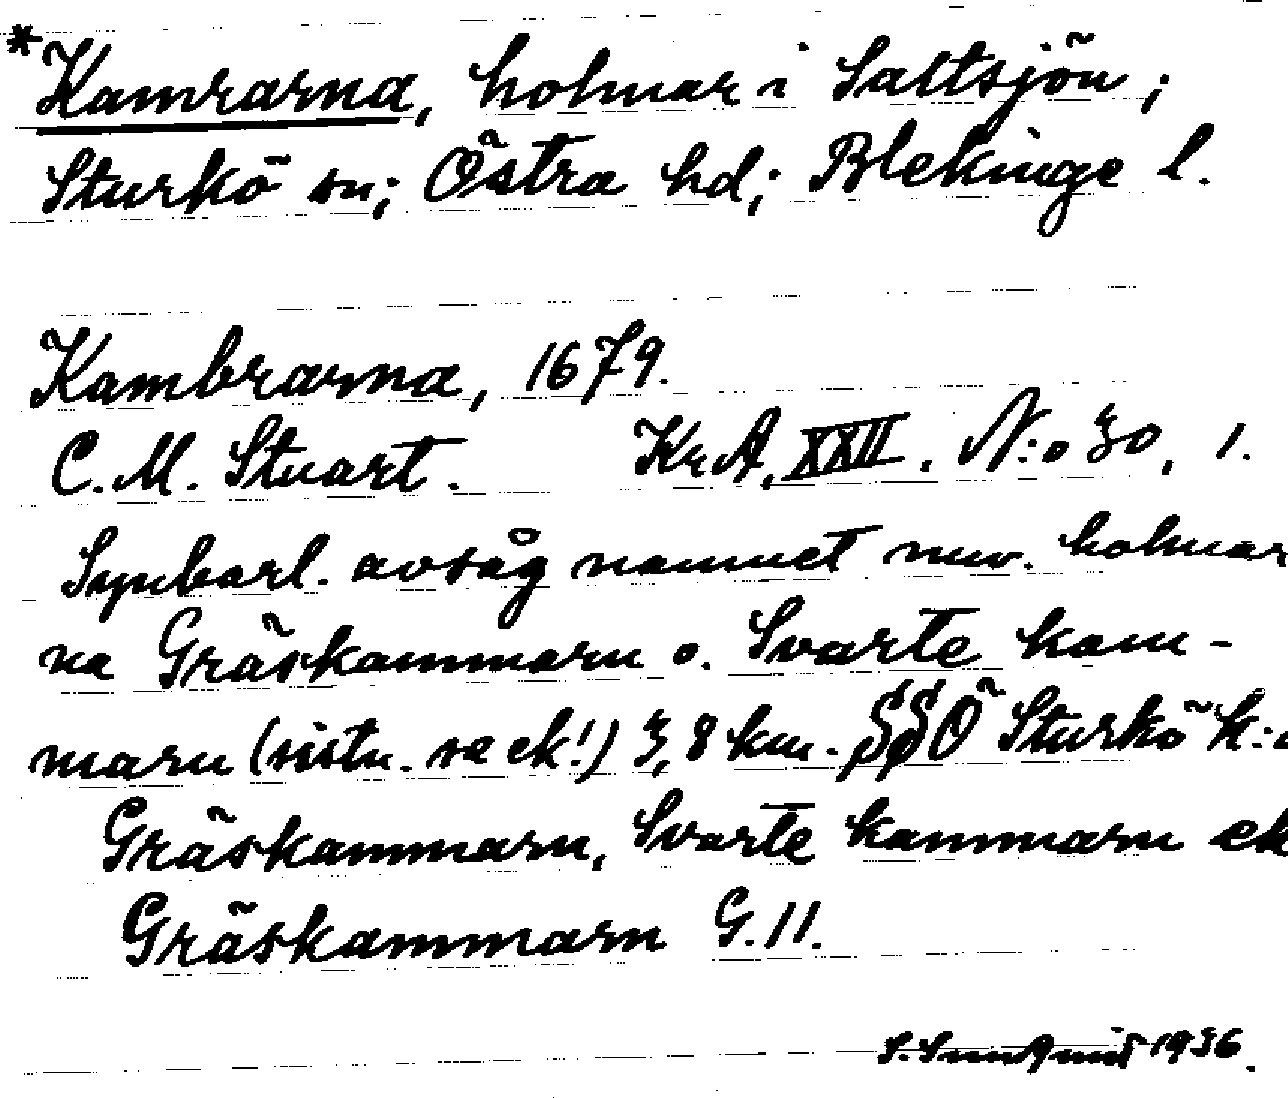 *Kamrarna, holmar i Saltsjön;
Sturkö sn; Östra hd; Blekinge l.
Kambrarna, 1679.
C.M. Stuart. KrA, XXII. N:o 30, 1.
Synbarl. avsåg namnet nuv. holmar
na Gräskammarn o. Svarte kam-
marn (sistn. se ek!) 3,8 km. SSÖ Sturkö k:a
Gräskammarn, Svarte kammarn ek
Gräskammarn G.11.
S. Sundquist 1936.